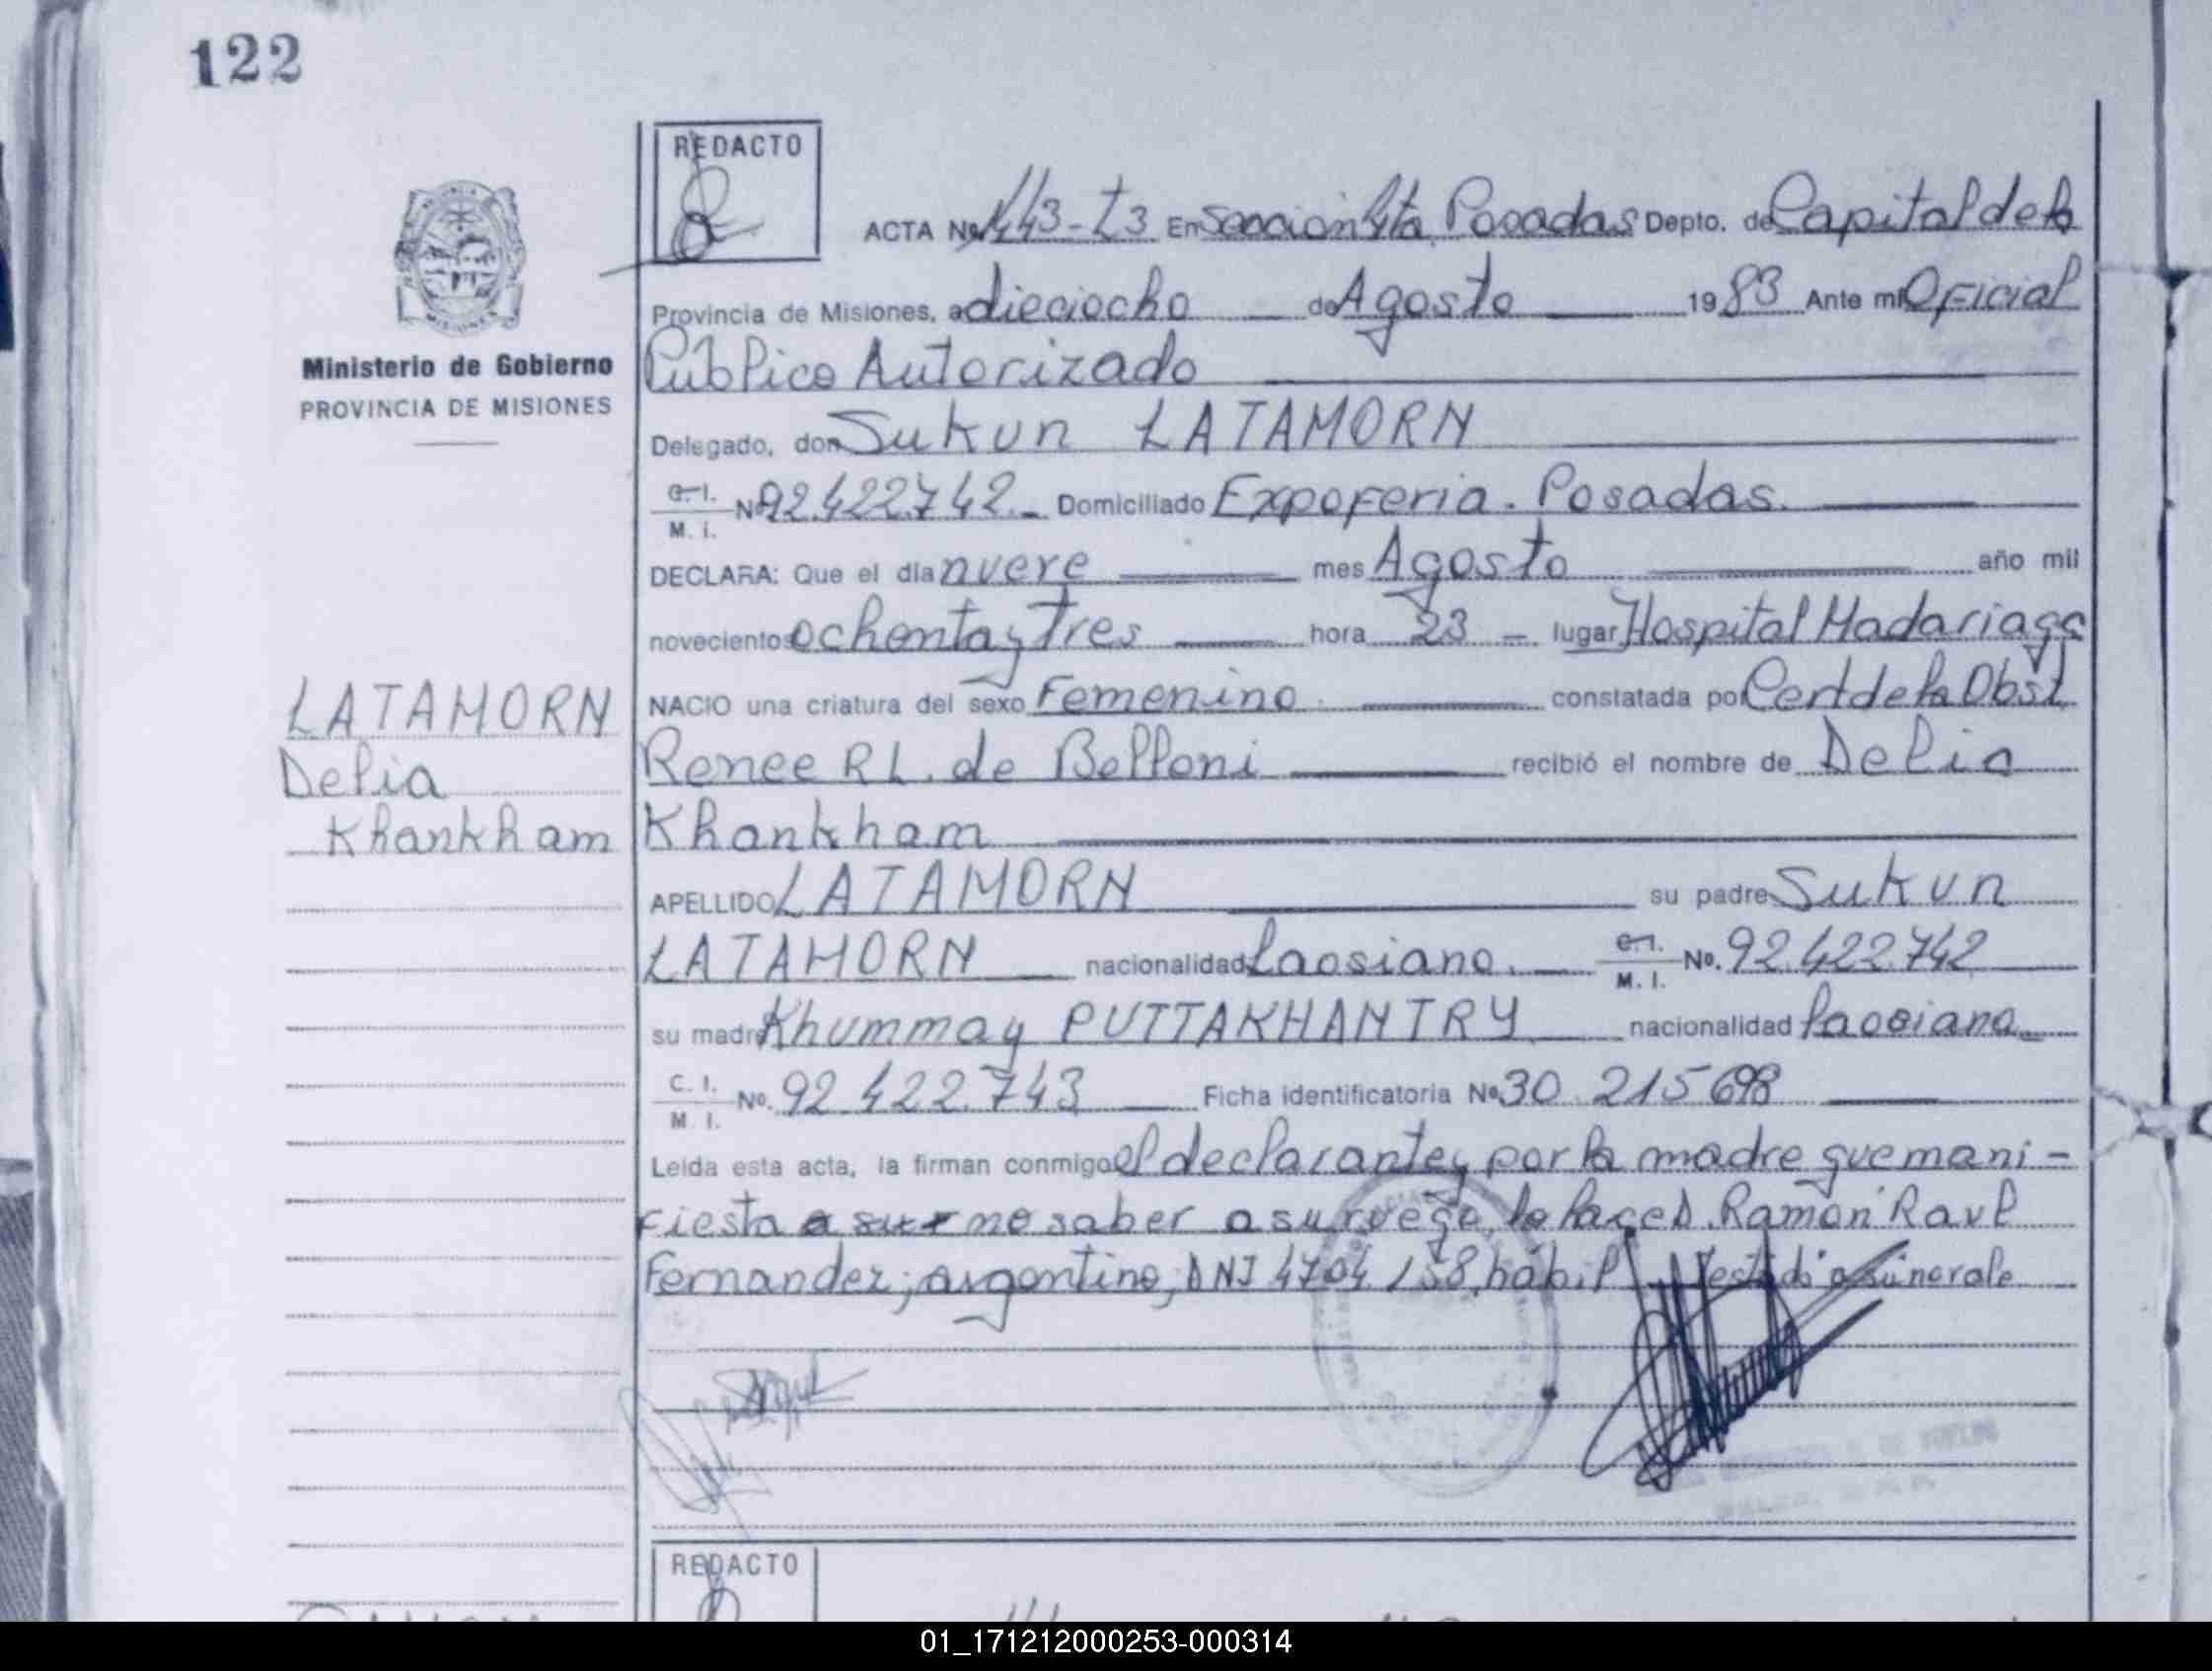 122
REDACTO
ACTA No. 443-T3 En Seccion 4ta Posadas Depto. de Capital de la
Provincia de Misiones, a dieciocho de Agosto 1983 Ante mí Oficial
Público Autorizado
Delegado, don Sukun LATAMORN
C.I. M.I. No. 92.422.742. Domiciliado Expoferia. Posadas.
DECLARA: Que el día nueve mes Agosto año mil
novecientos ochenta y Tres hora 23 lugar Hospital Madariaga
NACIO una criatura del sexo Femenino constatada por Cert de la Obst
Renee R L. de Belloni recibió el nombre de Delia
Khankham
APELLIDO LATAMORN su padre Sukun
LATAMORN nacionalidad laosiano. C.I. M.I. No. 92.422.742
su madre Khummay PUTTAKHANTRY nacionalidad laosiana
C.I. M.I. No. 92.422.743 Ficha identificatoria No. 30.215698
Leída esta acta, la firman conmigo el declarante y por la madre que mani-
fiesta no saber a su ruego lo hace D. Ramón Raul
Fernandez, argentino, DNI 4704158, hábil
Ministerio de Gobierno
PROVINCIA DE MISIONES
LATAMORN
Delia
Khankham
REDACTO
01_171212000253-000314